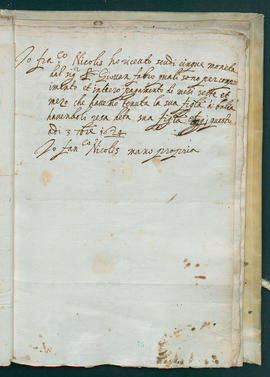 Io fran.co Nicolis ho riceuto scudi cinque moneta
dal sig.r Giovan fabro quali sono per comp
imento et intero pagamento di mesi sette et
mezo che haveno tenuta la sua figlia a balia
havendoli resa detta sua figlia oggi questo
di 3 1624
Io fran.co Nicolis mano propria